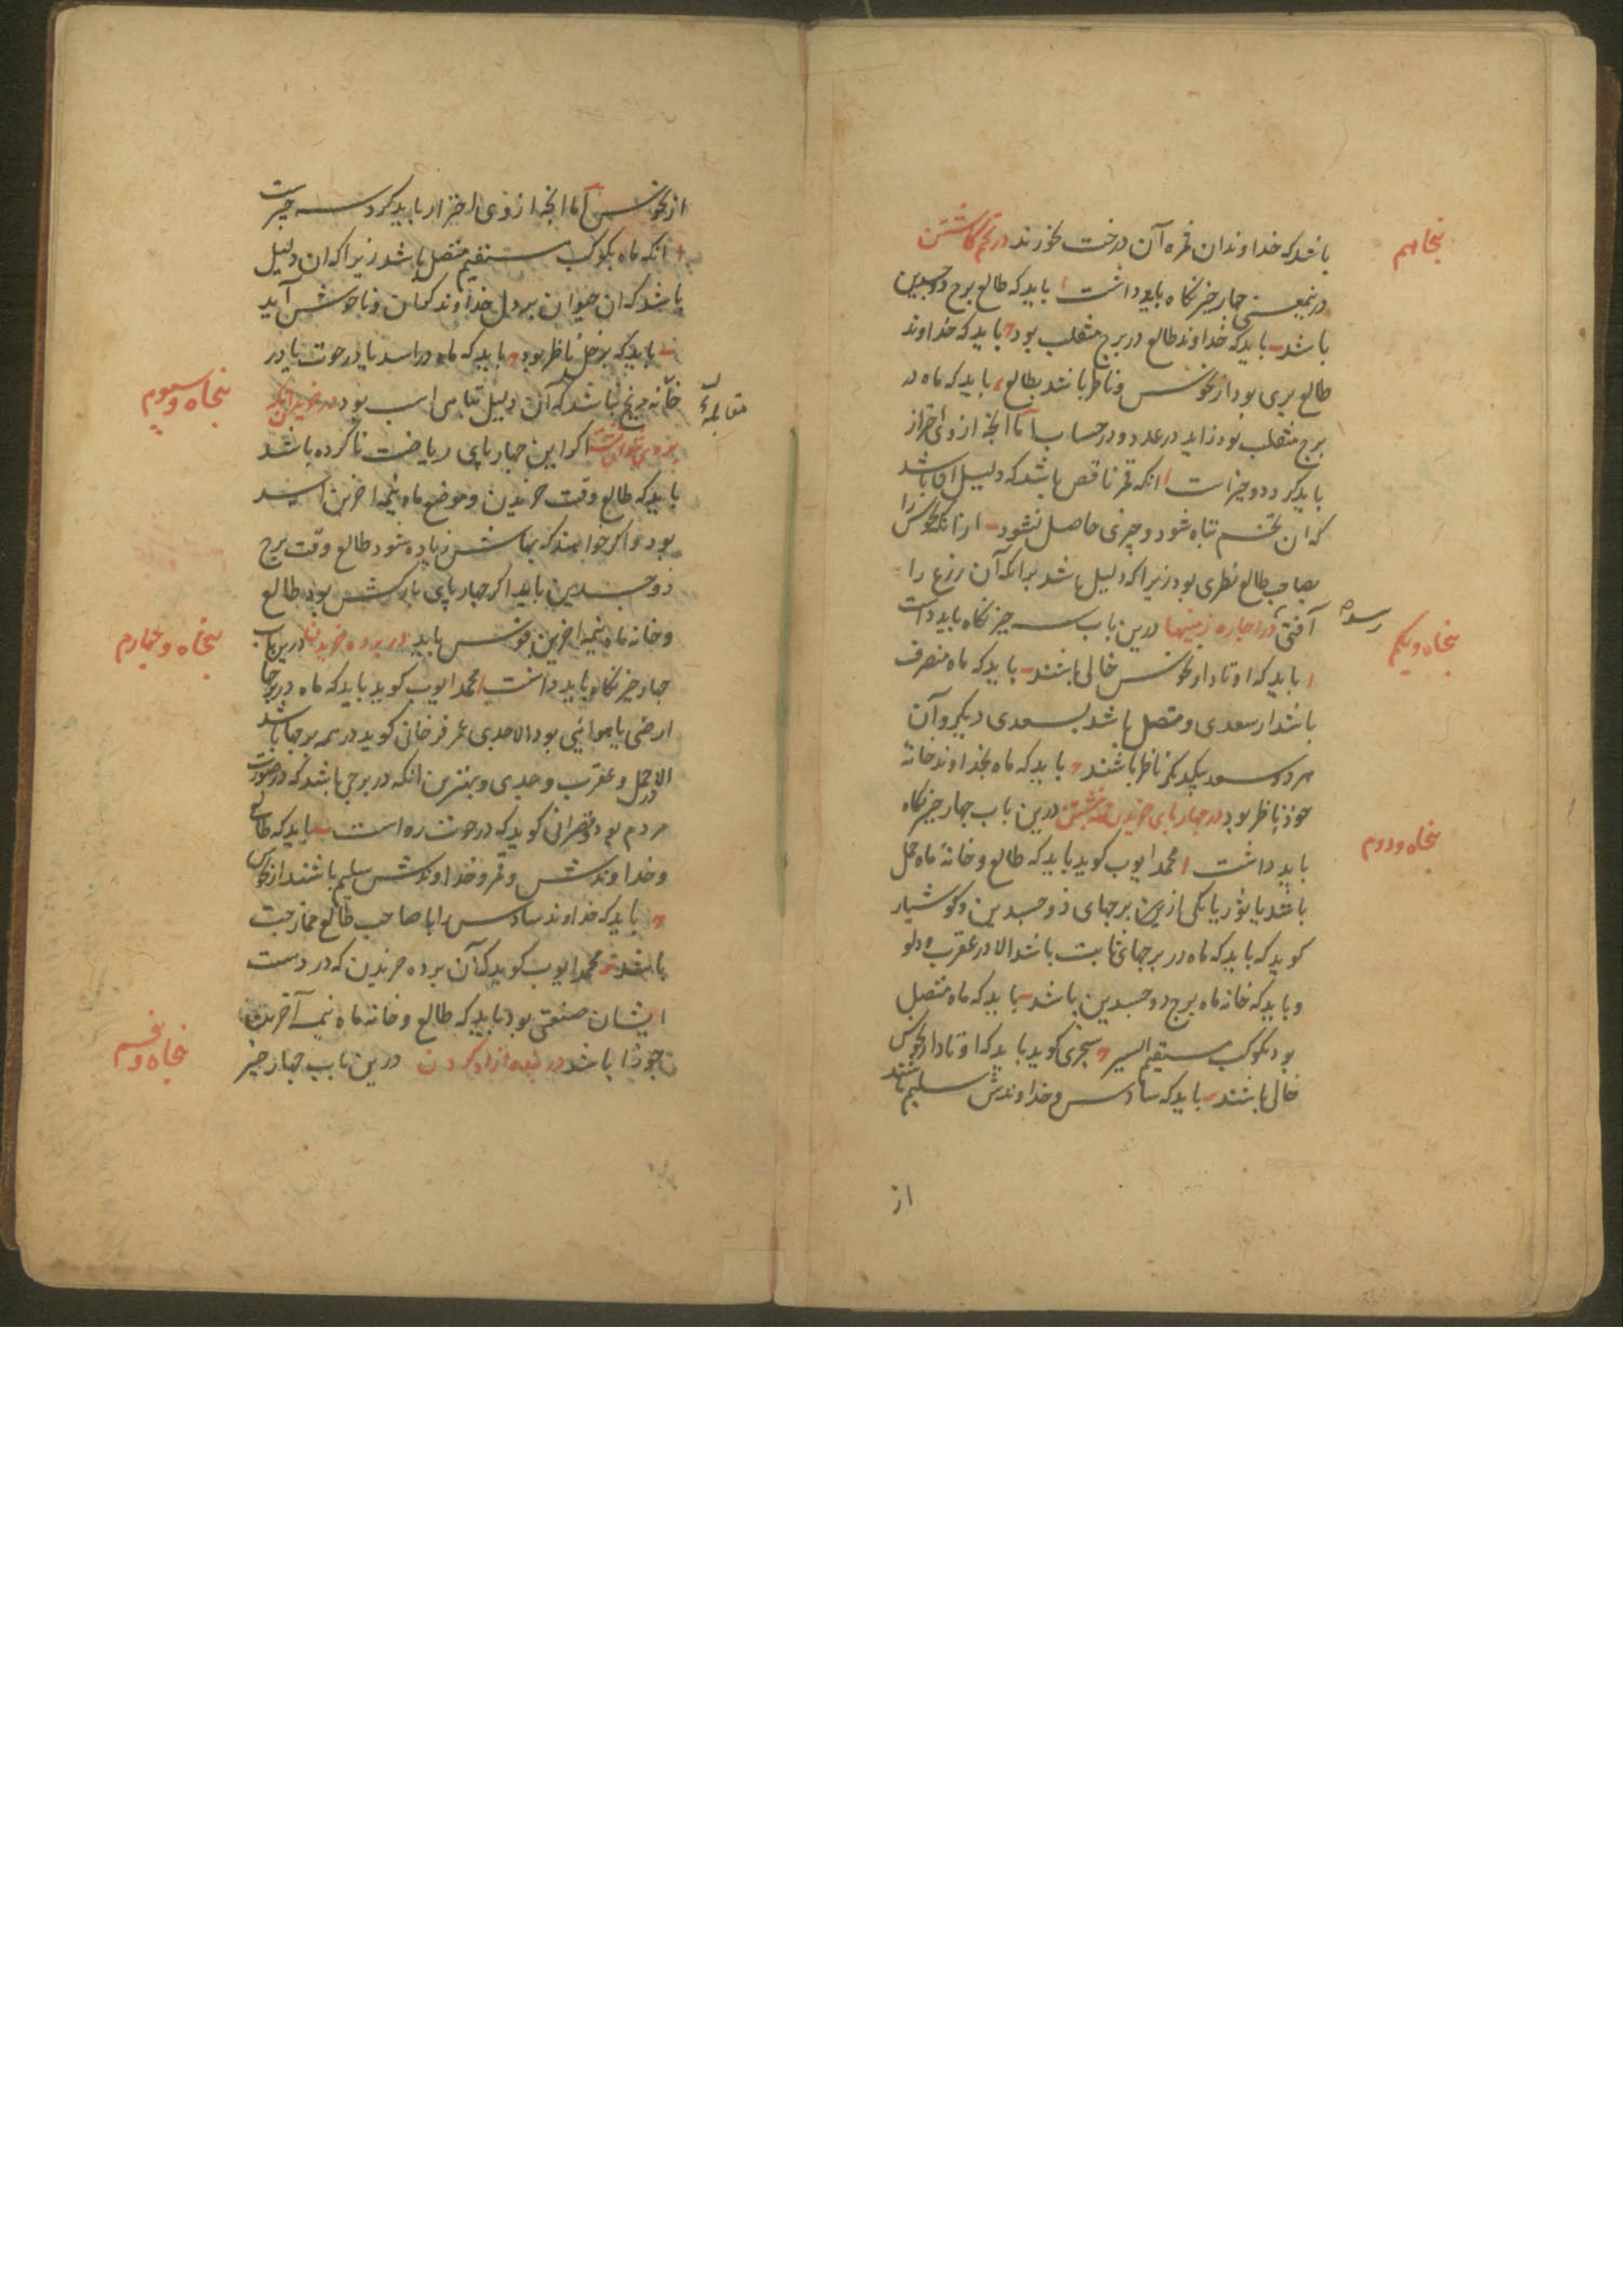 باشد که خداوندان ثمره آن درخت نخورند در تخم کاشتن
پنجاهم
درین معنی چهار چیز نگاه باید داشت ا باید که طالع برج ذوجسدین
باشد ب باید که خداوند طالع در برج منقلب بود ج باید که خداوند
طالع بری بود از نحوس و ناظر باشد بطالع د باید که ماه در
برج منقلب بود زاید در عدد و در حساب اما آنچه ازوی احتراز
باید کرد دو چیز است ا انکه قمر ناقص باشد که دلیل آن باشد
که ان تخم تباه شود و چیزی حاصل نشود ب از انکه نحوس را
بصاحب طالع نظری بود زیرا که دلیل باشد برانکه آن زرع را
آفتی رسد
در اجاره زمینها درین باب سه چیز نگاه باید داشت
پنجاه و یکم
ا باید که اوتاد از نحوس خالی باشند ب باید که ماه منصرف
باشد از سعدی و متصل باشد بسعدی دیگر و آن
هر دو سعد بیکدیگر ناظر باشند ج باید که ماه بخداوند خانه
خود ناظر بود در چهارپای خریدن درین باب چهار چیز نگاه
پنجاه و دوم
باید داشت ا محمد ایوب کوید باید که طالع و خانهٔ ماه حمل
باشد یا ثور یا یکی ازین برجهای ذوجسدین و کوشیار
کوید که باید که ماه در برجهای ثابت باشد الا در عقرب و دلو
و باید که خانه ماه برج ذوجسدین باشد ب باید که ماه متصل
بود بکوکب مستقیم السیر ج سجزی کوید باید که اوتاد از نحوس
خالی باشند د باید که سادس و خداوندش سلیم باشند
از
از نحوس اما انچه ازوی احتراز باید کرد سه چیز است
ا انکه ماه بکوکب مستقیم متصل باشد زیرا که ان دلیل
باشد که ان حیوان بر دل خداوند کران و ناخوش آید
ب باید که بزحل ناظر بود ج باید که ماه در اسد یا در حوت یا در
مقابلهٔ
خانه مریخ باشد که آن دلیل تباهی اسب بود در خریدن آنکه
پنجاه و سیوم
برو می توان نشست اگر این چهارپای ریاضت ناکرده باشد
باید که طالع وقت خریدن و موضع ماه نیمه اخرین اسد
بود و اگر خواهند که بهاش زیاده شود طالع وقت برج
ذوجسدین باید اگر چهارپای بارکش بود طالع
و خانه ماه نیمه اخرین قوس باید در برده خریدن درین باب
پنجاه و چهارم
چهار چیز نگاه باید داشت ا محمد ایوب کوید باید که ماه در برجها
ارضی یا هوائی بود الا جدی عمر فرخان کوید در همه برجها باشد
الا در حمل و عقرب و جدی و بهترین انکه در برجی باشد که در صورت
مردم بود و نصرانی کوید که در حوت ره است ب باید که طالع
و خداوندش و قمر و خداوندش سلیم باشند از نحوس
ج باید که خداوند سادس را با صاحب طالع ممازجت
باشد د محمد ایوب کوید که آن برده خریدن که در دست
ایشان صنعتی بود باید که طالع و خانه ماه نیمه آخرین
جوزا باشد در بنده ازاد کردن درین باب چهار چیز
پنجاه و پنجم